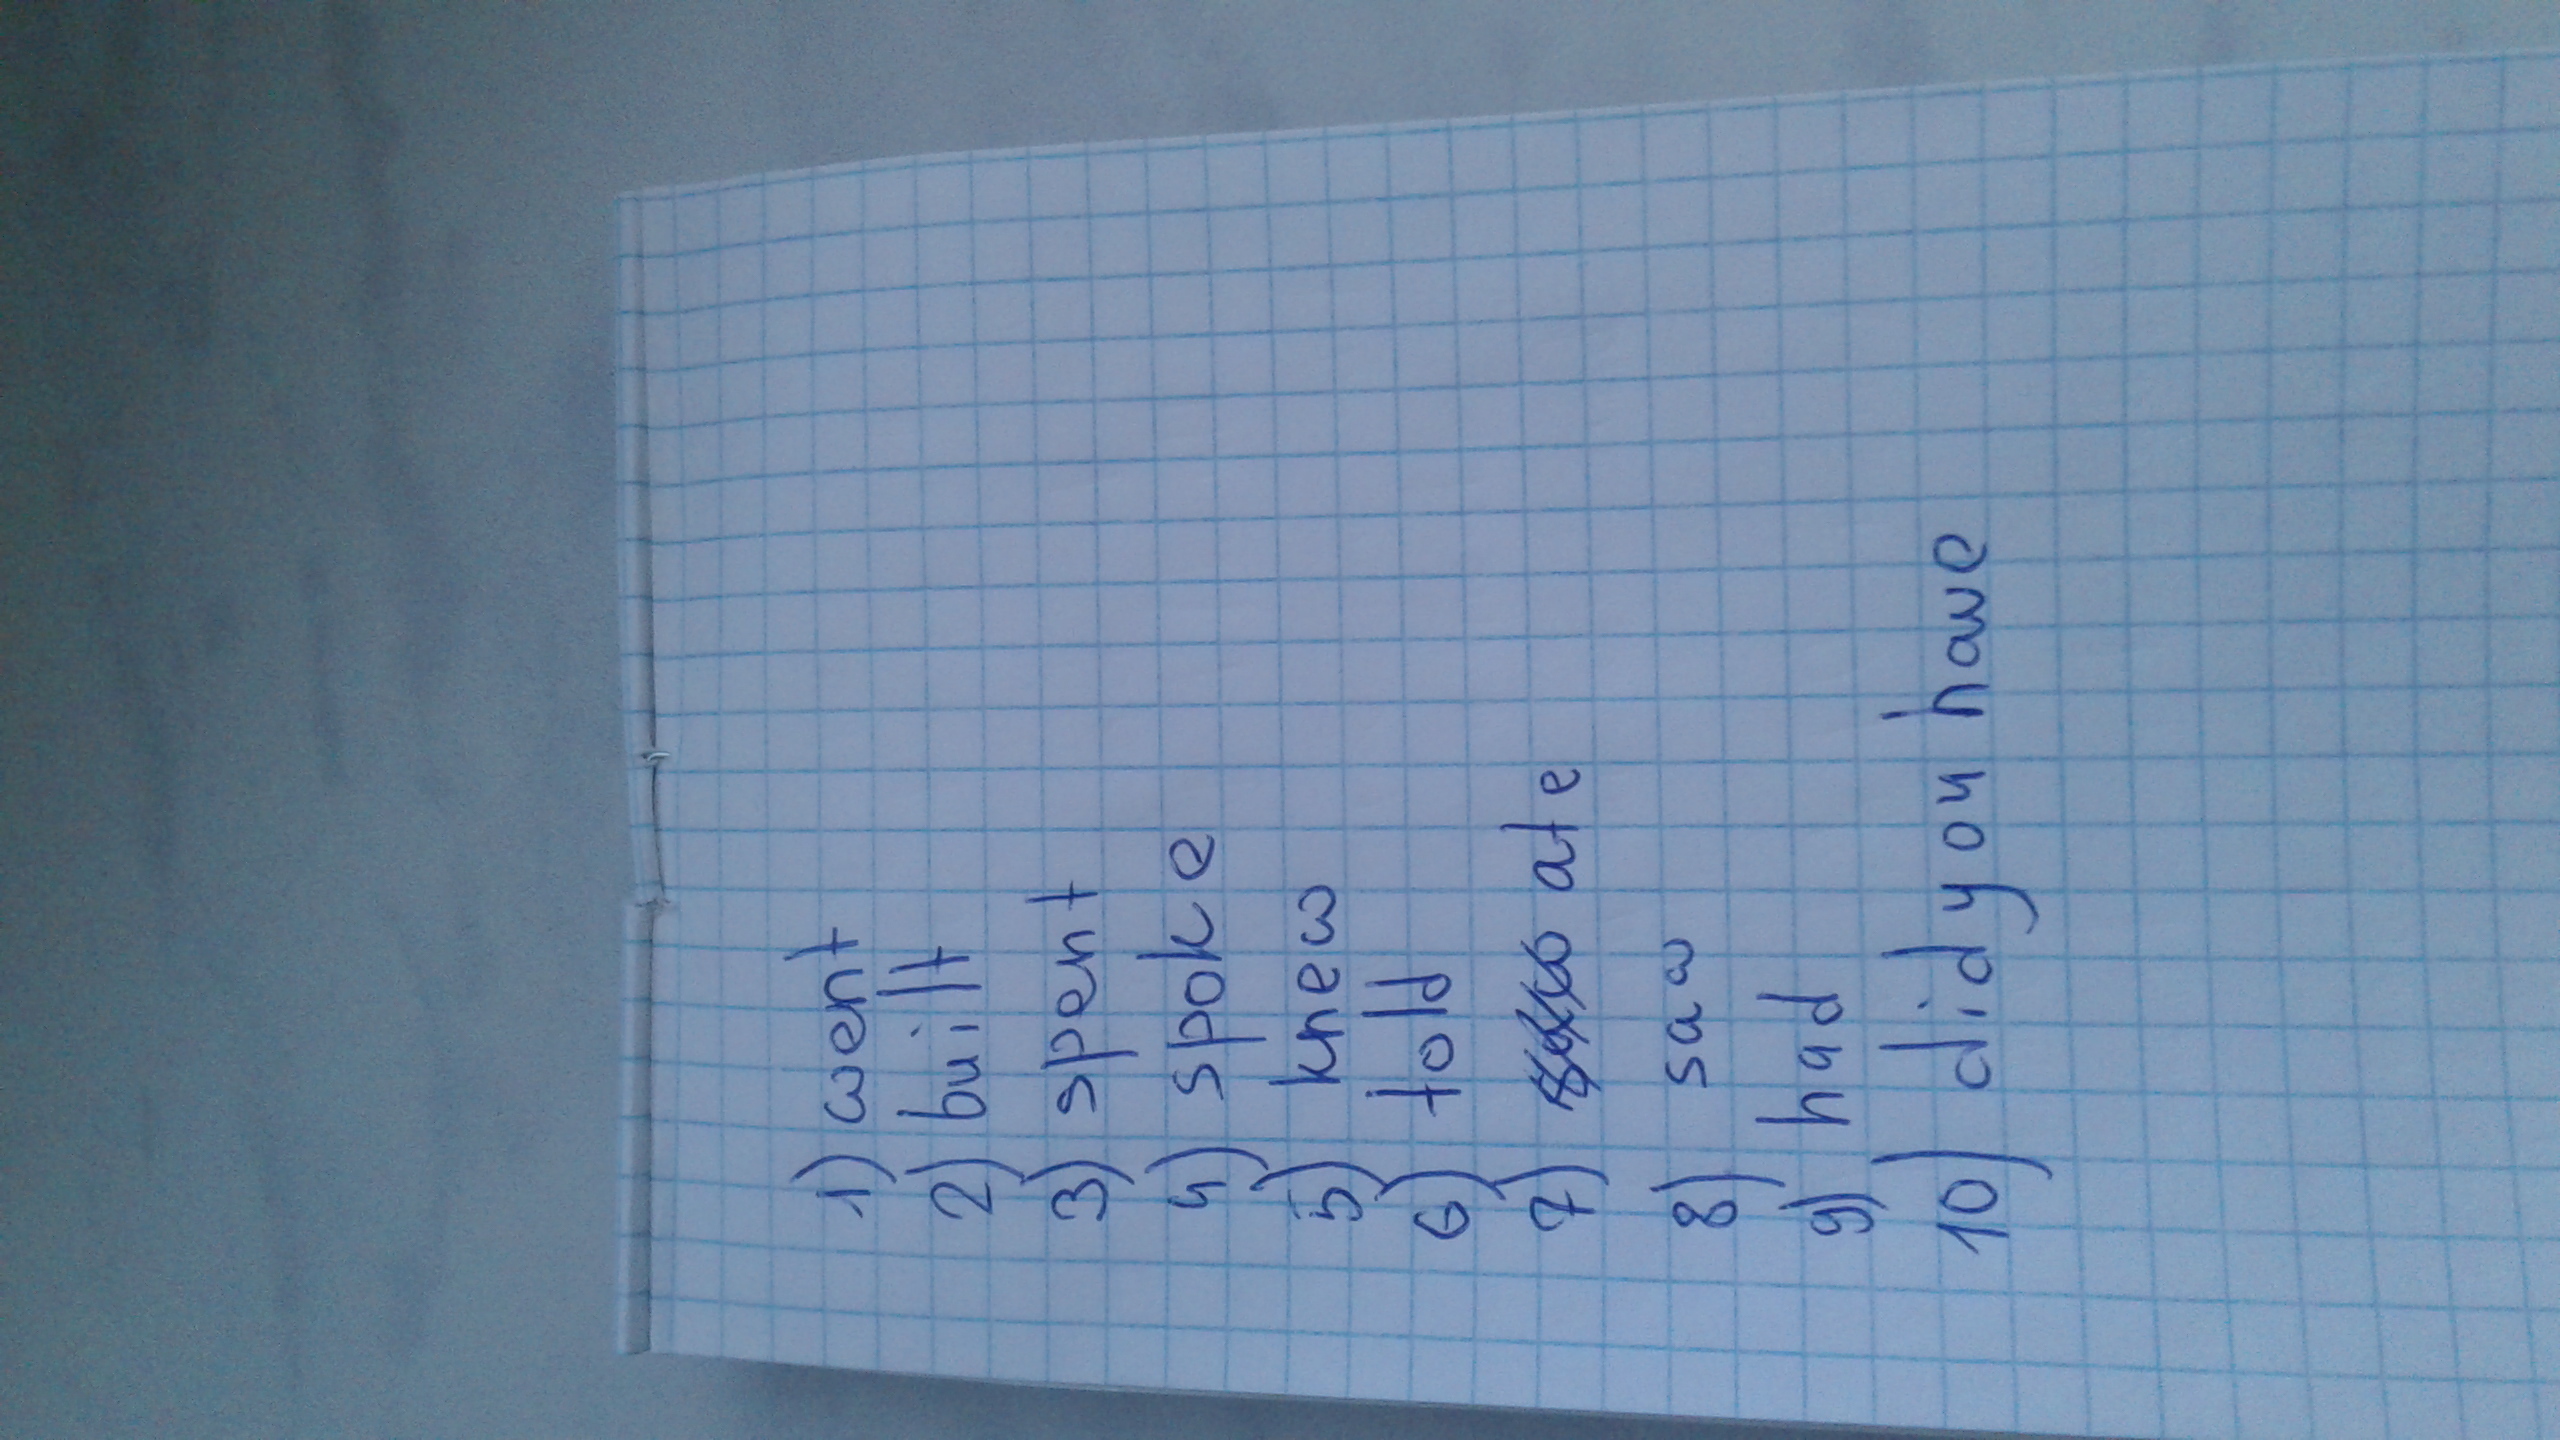 1) went
2) built
3) spent
4) spoke
5) knew
6) told
7) ate
8) saw
9) had
10) did you have